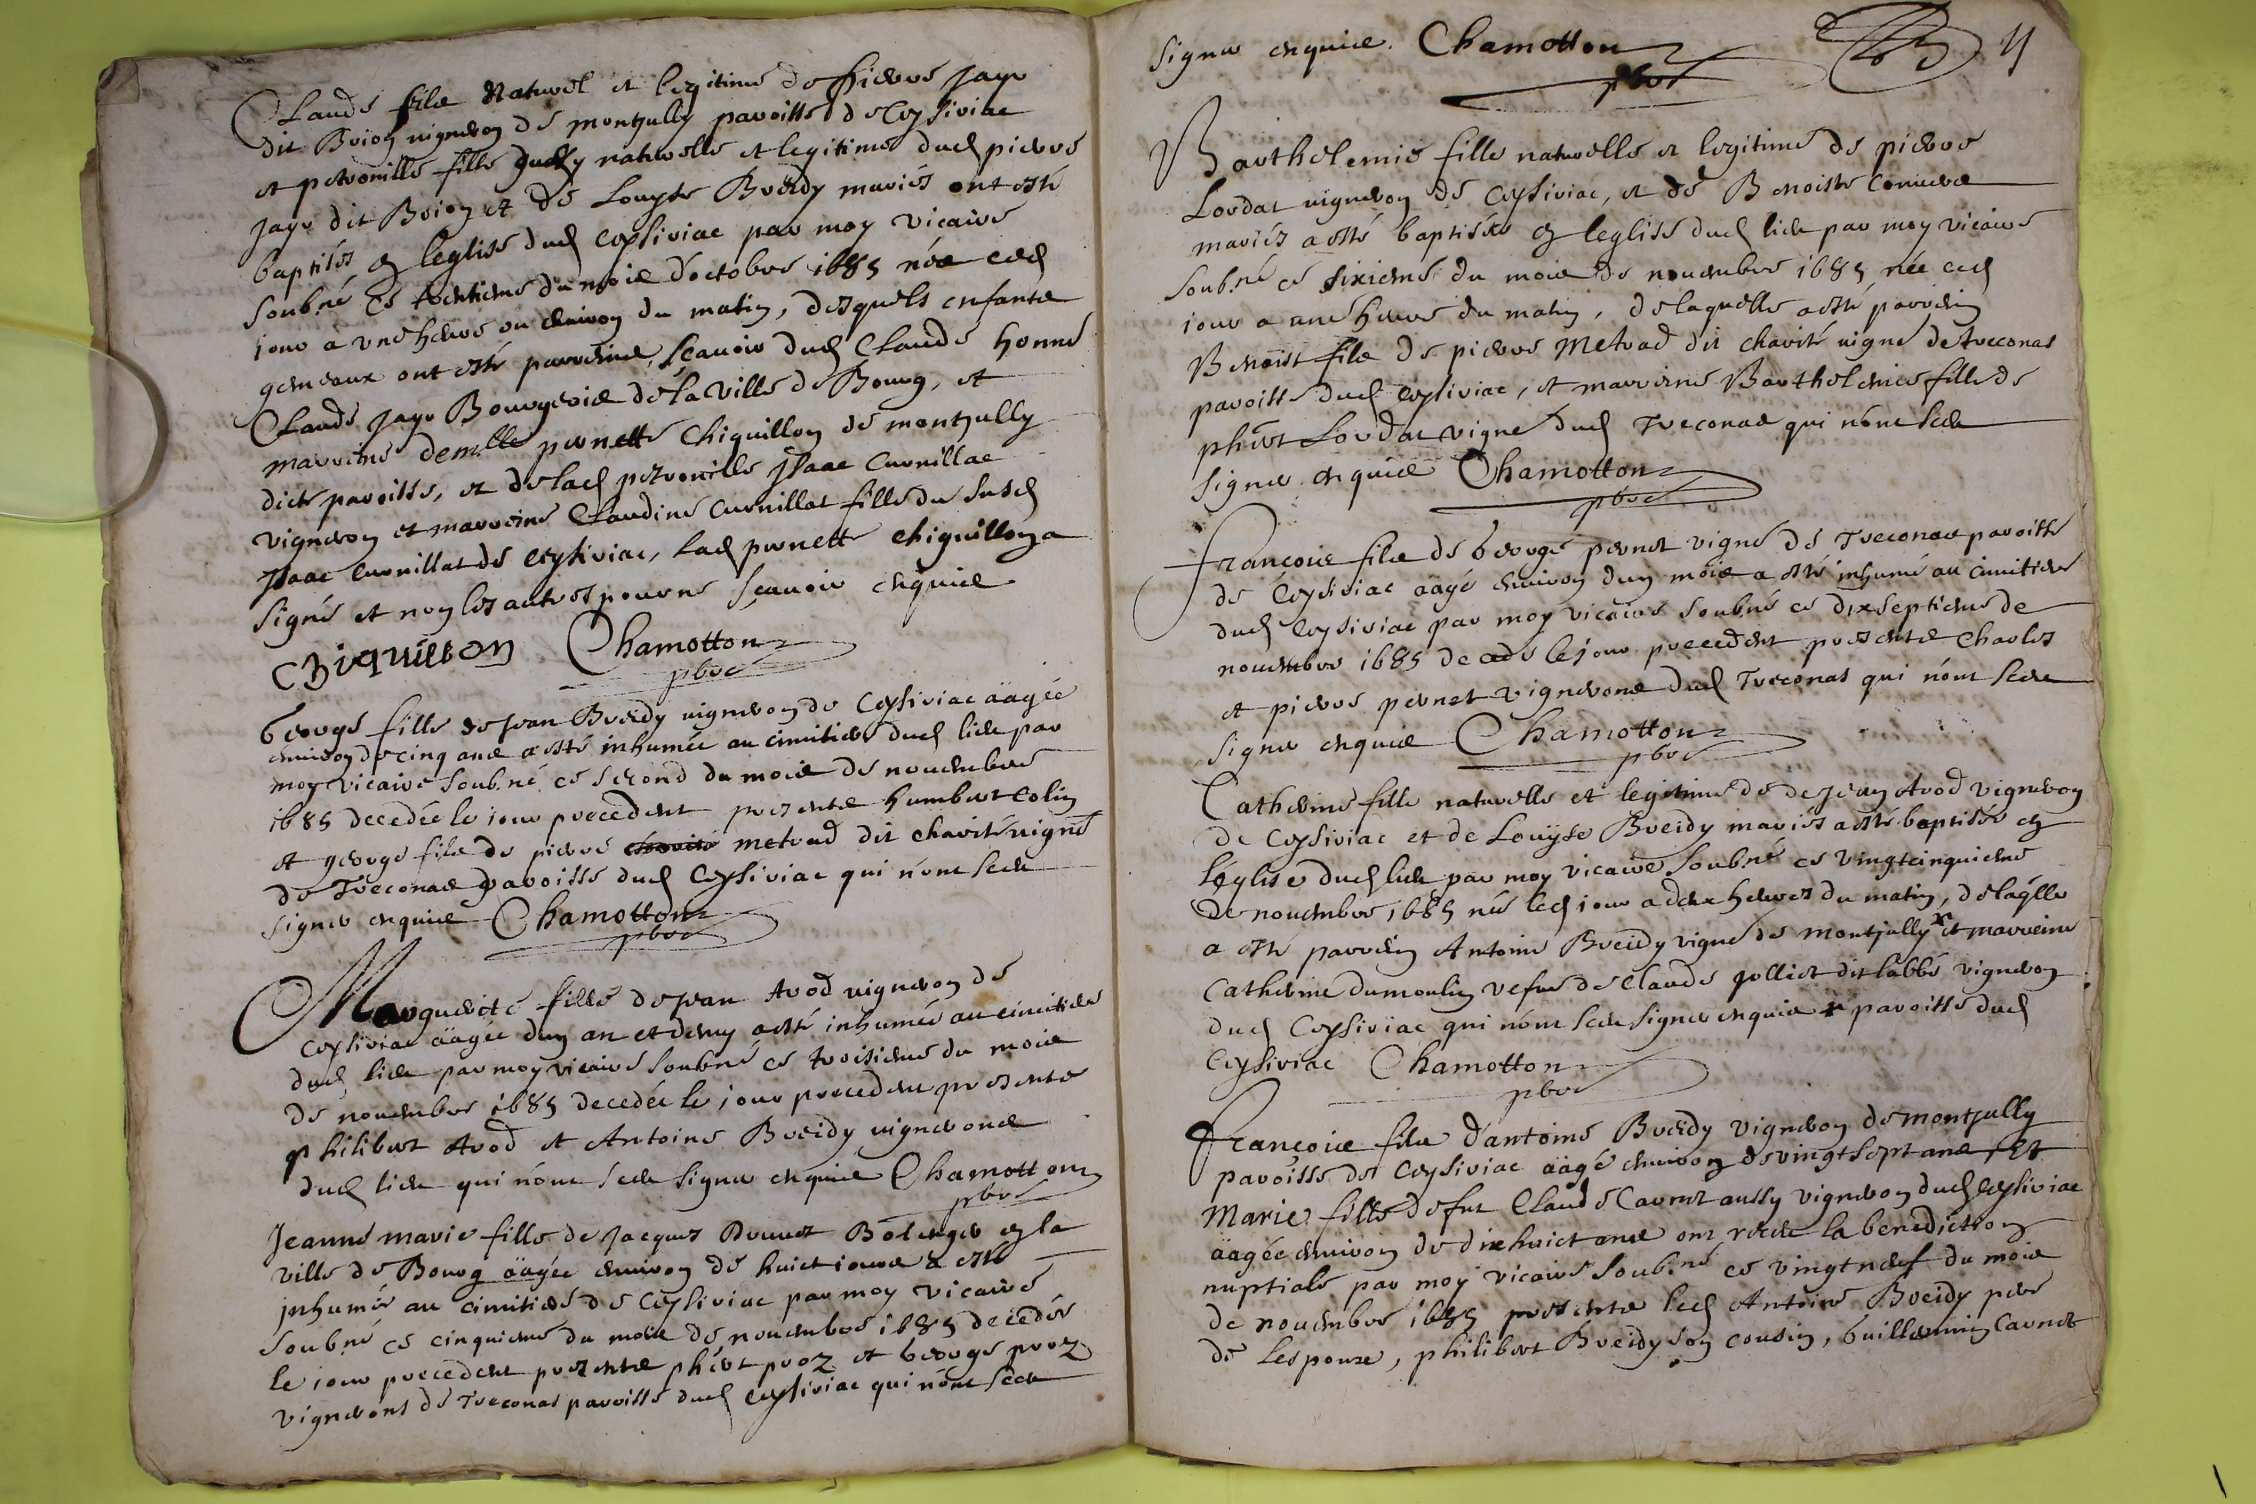 Claude fils Naturel et legitime de Pierre Jayr
dit Brion vigneron de montjully paroisse de Ceysiriac
et petronille fille aussy naturelle et legitime dud pierre
Jayr dit Brion et de Louyse Breidy mariés ont esté
baptisés en leglise dud Ceysiriac par moy vicaire
soub.né ce trentieme du mois doctobre 1685 nés ced
jour a une heure ou environ du matin, desquels enfants
gemeaux ont esté parreins, sçavoir dud Claude honné
Claude Jayr Bourgeois de la ville de Bourg, et
marreine demlle pernette Chiquillon de montjully
dicte paroisse, et de lad petronille Isaac Curnillac
vigneron et marreine Claudine Curnillat fille du susd
Isaac Curnillat de Ceysiriac, lad pernette Chiquillon a
signé et non les autres pour ne sçavoir enquis
CHiqUilloN Chamotton
pbre
George fille de Jean Breidy vigneron de Ceysiriac äagée
environ de cinq ans a esté inhumée au cimitiere dud lieu par
moy vicaire soub.né ce second du mois de novembre
1685 decedée le jour precedent presents humbert Colin
et george fils de pierre metrad dit charité vigne
de Treconas paroisse dud Ceysiriac qui n'ont sceu
signer enquis Chamotton
pbre
Marguerite fille de Jean Avod vigneron de
Ceysiriac äagée dun an et demy a esté inhumée au cimitiere
dud lieu par moy vicaire soubné ce troisieme du mois
de novembre 1685 decedée le jour precedent presents
philibert Avod et Antoine Breidy vignerons
dud lieu qui n'ont sceu signer enquis Chamotton
pbre
Jeanne marie fille de Jacques Bolenger en la
ville de Bourg äagée environ de huict jours a esté
inhumée au cimitiere de Ceysiriac par moy vicaire
soubné ce cinquieme du mois de novembre 1685 decedée
le jour precedent presents phbert proz et George proz
vignerons de Treconas paroisse dud Ceysiriac qui n'ont sceu
signer enquis. Chamotton
pbre
Barthelemie fille naturelle et legitime de pierre
Lordat vigneron de Ceysiriac, et de Benoiste
mariés a esté baptisée en leglise dud lieu par moy vicaire
soub.né ce sixieme du mois de novembre 1685 née ced
jour a une heure du matin, de laquelle a esté parrein
Benoist fils de pierre Metrad dit charité vigne de treconas
paroisse dud Ceysiriac, et marreine Barthelemie fille de
phbert Lordat vigne dud Treconas qui n'ont sceu
signer enquis Chamotton
pbre
Francois fils de George pernet vigne de Treconas paroisse
de Ceysiriac äagé environ dun mois a esté inhumé au cimitiere
dud Ceysiriac par moy vicaire soub.né ce dixseptieme de
novembre 1685 decedé le jour precedent presents Charles
et pierre pernet vignerons dud Treconas qui n'ont sceu
signer enquis Chamotton
pbre
Catherine fille naturelle et legitime de de Jean Avod vigneron
de Ceysiriac et de Louyse Breidy mariés a esté baptisée en
l'eglise dud lieu par moy vicaire soub.né ce vingtcinquieme
de novembre 1685 née led jour a deux heures du matin, de laqlle
a esté parrein Antoine Breidy vigne de montjully x et marreine
Catherine dumoulin vefve de Claude Jolliet dit labbé vigneron
dud Ceysiriac qui n'ont sceu signer enquis x paroisse dud
Ceysiriac Chamotton
pbre
Francois fils d'antoine Breidy vigneron de montjully
paroisse de Ceysiriac äagé environ de vingt sept ans, Et
Marie fille de fut Claude Carret aussy vigneron dud Ceysiriac
äagée environ de dix huict ans ont receu la benediction
nuptiale par moy vicaire soub.né ce vingtneuf du mois
de novembre 1685 presents led Antoine Breidy pere
de lespoux, philibert Breidy son cousin, Guillermin Carret